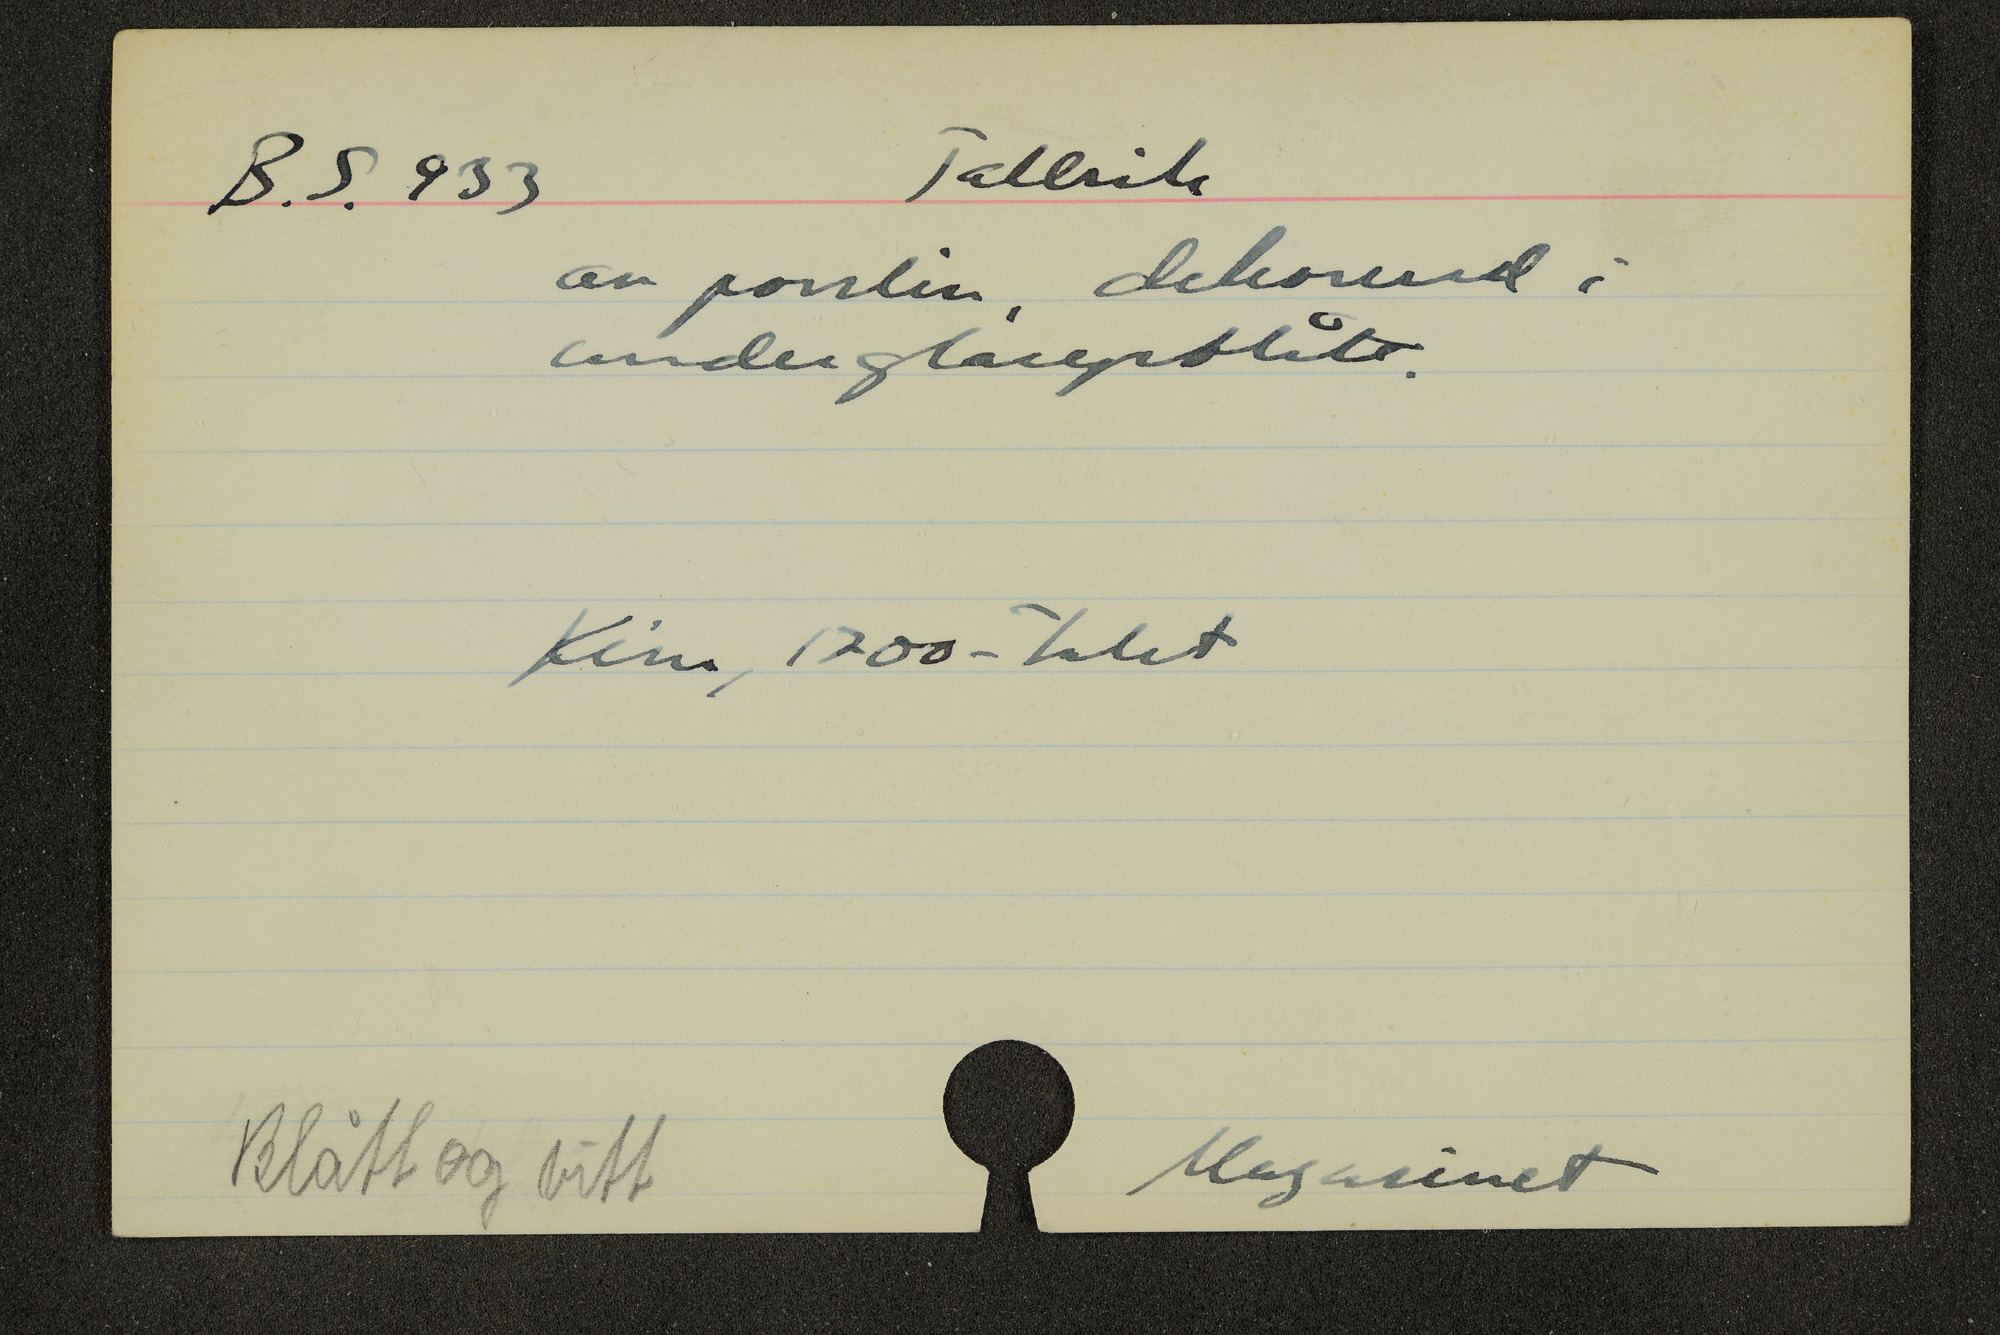 B.S. 933 Tallrik
av porslin, dekorerad i
underglasyrblått.
Kina, 1700-talet
Blått og vitt
Magasinet